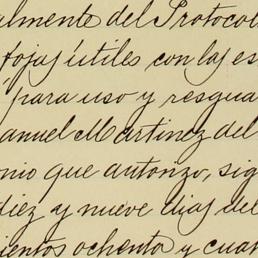 almente del Protocol
fojas útiles con las es
para uso y resgua
anuel Martinez del
onio que autorizo, sig
diez y nueve dias del
ientos ochenta y cua